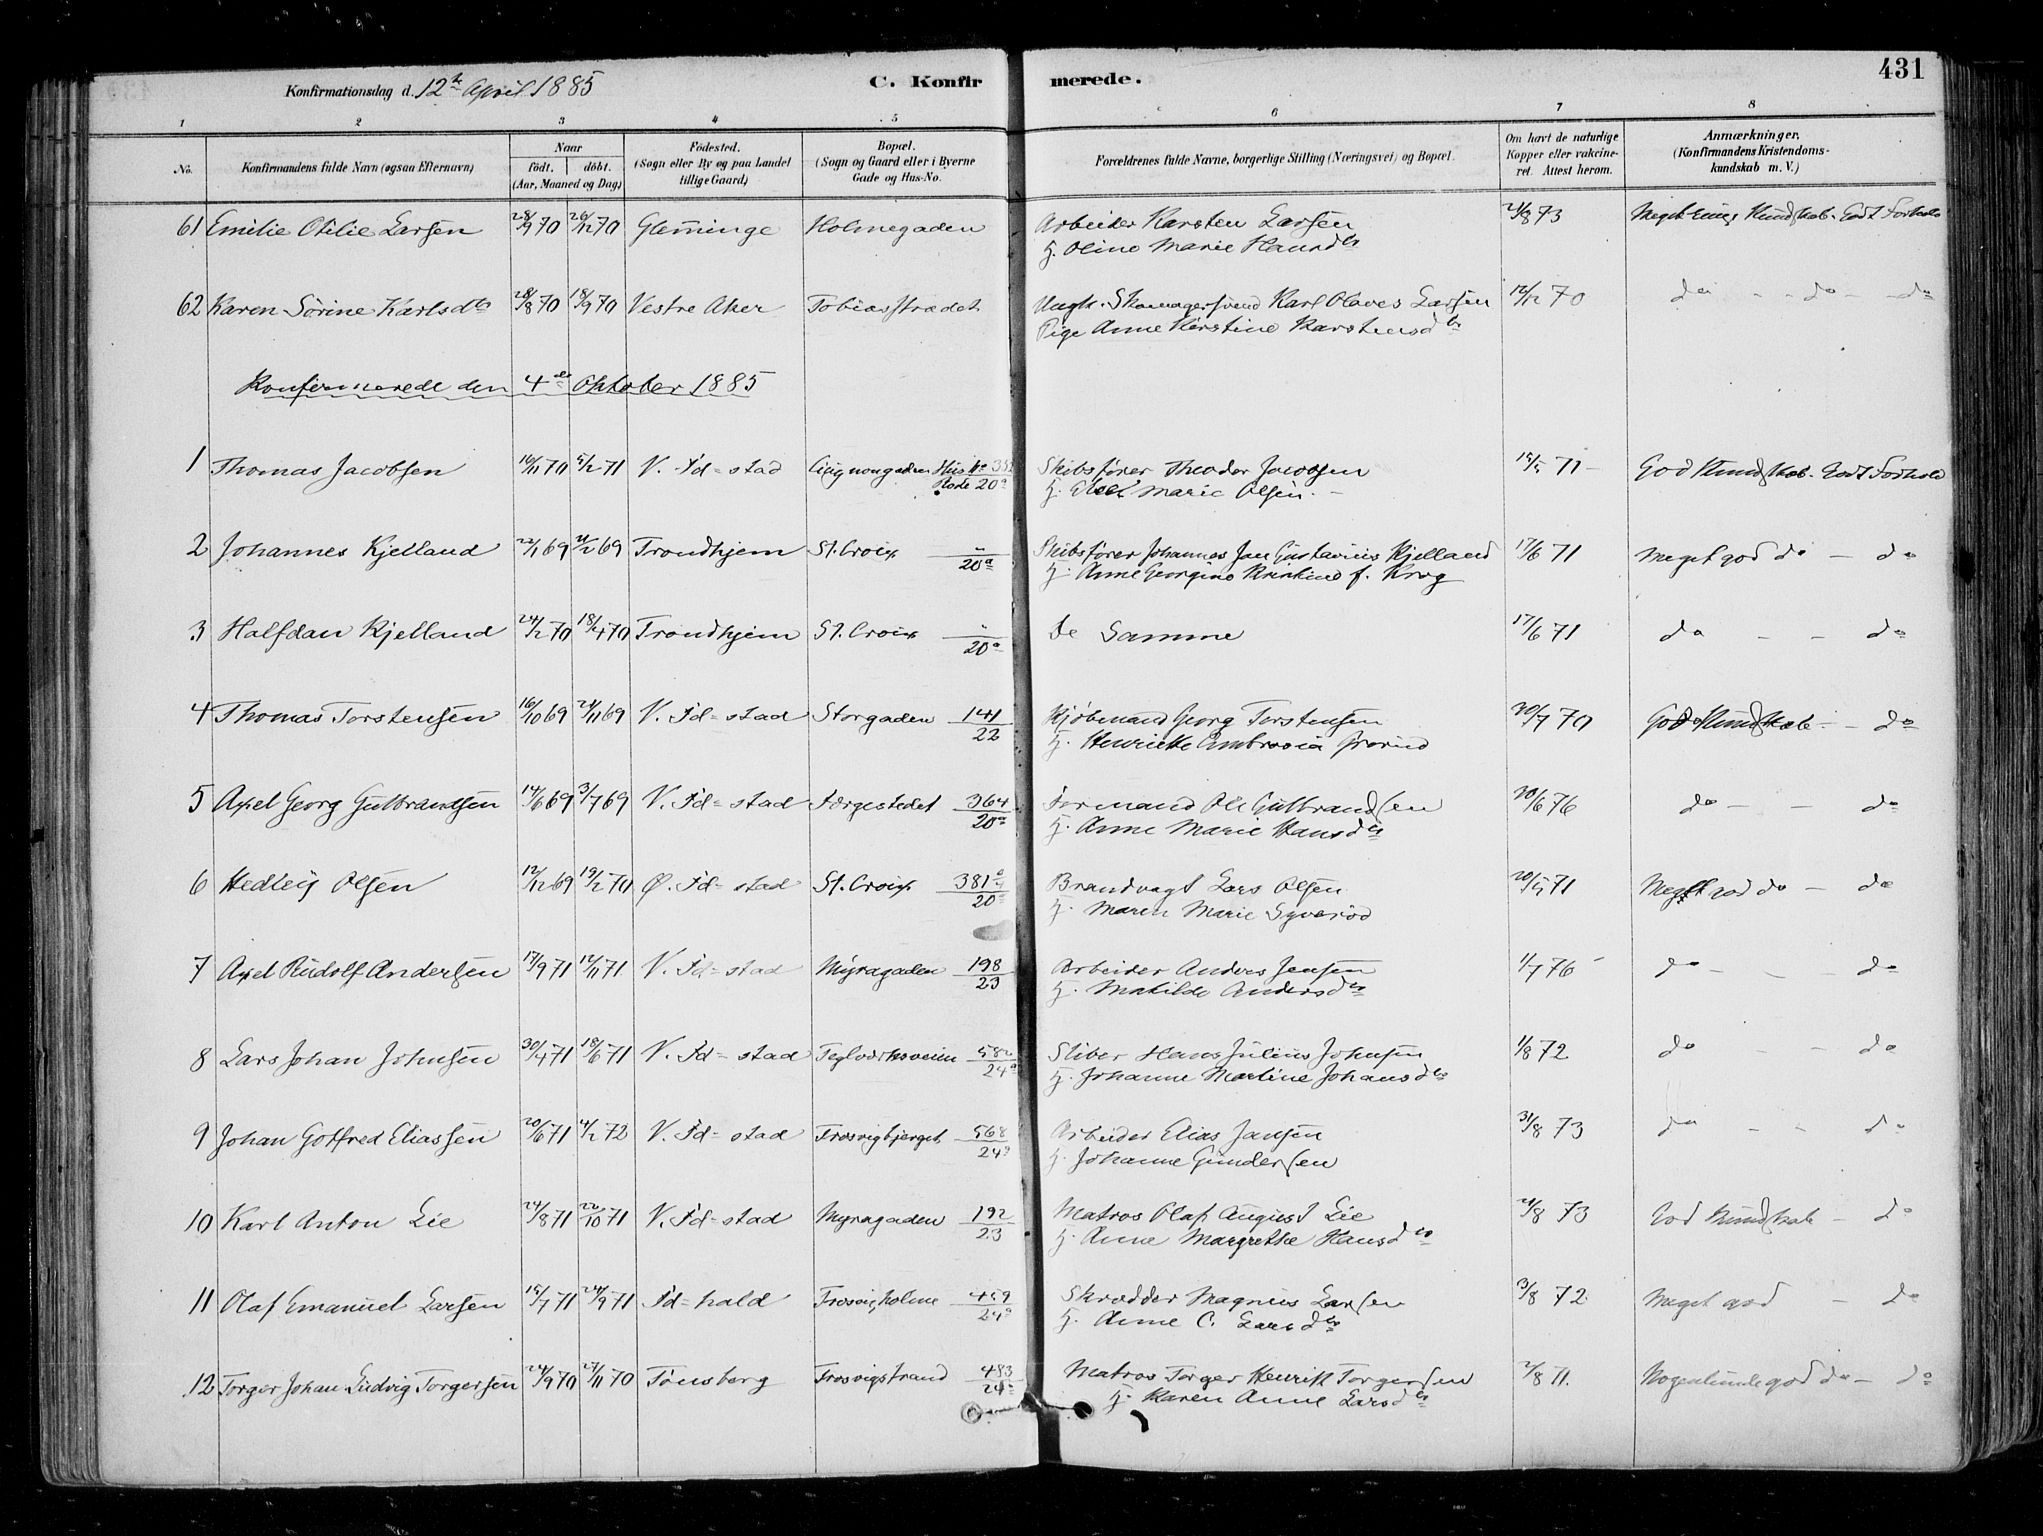 Konfirmationsdag d. 12te April 1885
C. Konfirmerede.
431
1 2 3 4 5 6 7 8
No. Konfirmandens fulde Navn (ogsaa Efternavn) Naar født. døbt. (Aar, Maaned og Dag) Fødested. (Sogn eller By og paa Landet tillige Gaard) Bopæl. (Sogn og Gaard eller i Byerne Gade og Hus-No. Forældrenes fulde Navne, borgerlige Stilling (Næringsvei) og Bopæl. Om havt de naturlige Kopper eller vakcineret. Attest herom. Anmærkninger. (Konfirmandens Kristendomskundskab m. V.)
61 Emilie Otilie Larsen 28/9 70 26/12 70 Glemminge Holmegaden Arbeider Karsten Larsen 21/8 73 Meget Kundskab. Godt Forhold
H. Oline Marie Hansdtr
62 Karen Sørine Karlsdtr 28/8 70 18/9 70 Vestre Aker Tobiasstrædet Ungk. Skomagersvend Karl Olaves Larsen 12/12 70 do - - do - - do
Pige Anne Kirstine Karstensdtr
Konfirmerede den 4de Oktober 1885
1 Thomas Jacobsen 16/11 70 5/2 71 V. Fd=stad Hus No Rode 20a Skibsfører Theodor Jacobsen 15/5 71 God Kundskab. Godt Forhold
H. Marie Olsen. -
2 Johannes Kjelland 22/1 69 21/2 69 Trondhjem St. Croix " 20a Skibsfører Johannes Jan Gustavius Kjelland 17/6 71 Meget god do - do
H. Anne Georgine Kristine f. Krog
3 Halfdan Kjelland 24/2 70 18/4 70 Trondhjem St. Croix " 20a De Samme 17/6 71 do - - do
4 Thomas Torstensen 16/10 69 21/11 69 V. Fd=stad Storgaden 141/22 Kjøbmand Georg Torstensen 20/7 70 God Kundskab - - do
H. Henriette Ambrosia
5 Axel Georg Gulbrandsen 14/6 69 3/7 69 V. Fd=stad Færgestedet 364/20a Formand Ole Gulbrandsen 20/6 76 do - - do
H. Anne Marie Hansdtr
6 Hedley Olsen 12/12 69 19/2 70 Ø. Fd=stad St. Croix 381a/20 Brandvagt Lars Olsen 20/5 71 Meget god do - do
H. Maren Marie
7 Axel Rudolf Andersen 17/9 71 12/11 71 V. Fd=stad Myragaden 198/23 Arbeider Anders Jensen 1/7 76 do - - do
H. Matilde Andersdtr
8 Lars Johan Johnsen 30/4 71 18/6 71 V. Fd=stad Teglværksveien 582/24a Sliber Hans Julius Johnsen 1/8 72 do - - do
H. Johanne Martine Johansdtr
9 Johan Gotfred Eliassen 20/6 71 4/2 72 V. Fd=stad Trosvigbjerget 568/24a Arbeider Elias Jansen 31/8 73 do - - do
H. Johanne Gundersen
10 Karl Anton Lie 24/8 71 22/10 71 V. Fd=stad Myragaden 192/23 Matros Olaf August Lie 21/8 73 God Kundskab - do
H. Anne Margrethe Hansdtr
11 Olaf Emanuel Larsen 15/7 71 24/9 71 Fd=hald 459/24a Skrædder Magnus Larsen 3/8 72 Meget god - do
H. Anne C. Larsdtr
12 Torger Johan Ludvig Torgersen 24/9 70 27/11 70 Tønsberg Trosvigstrand 483/24a Matros Torger Henrik Torgersen 2/8 71. Nogenlunde god do - do
H. Karen Anne Larsdtr